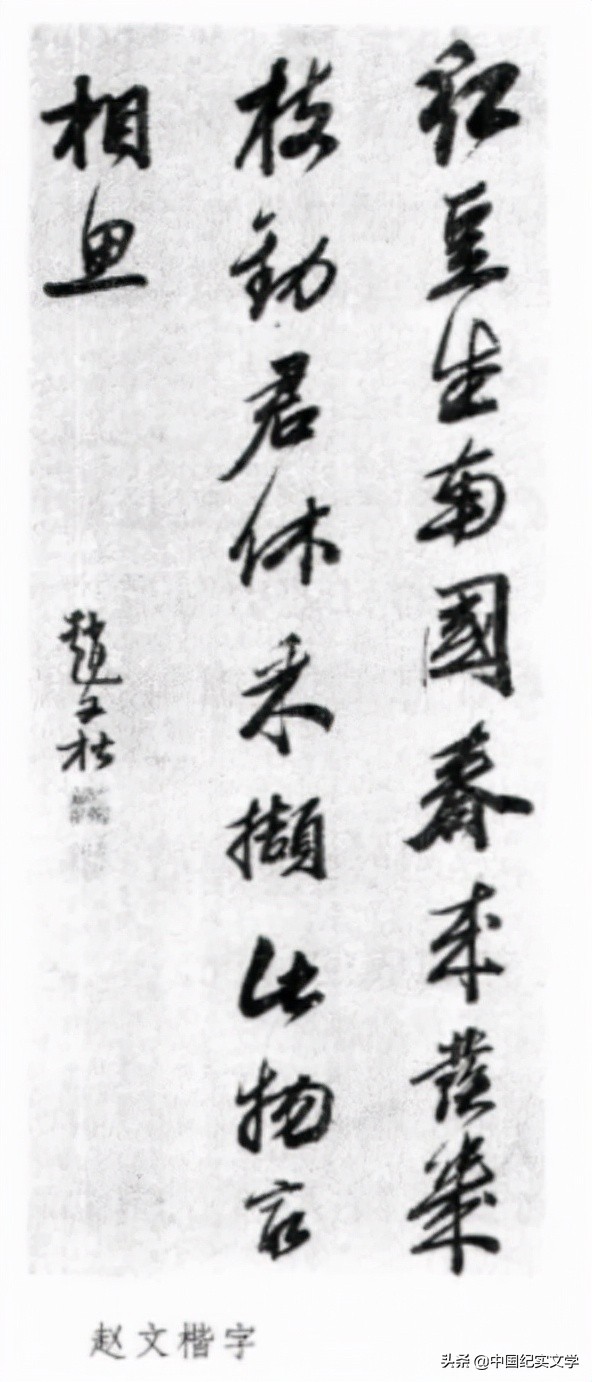 紅豆生南國春来發幾
枝勸君休采擷此物最
相思
趙文楷
赵文楷字
头条 @中国纪实文学